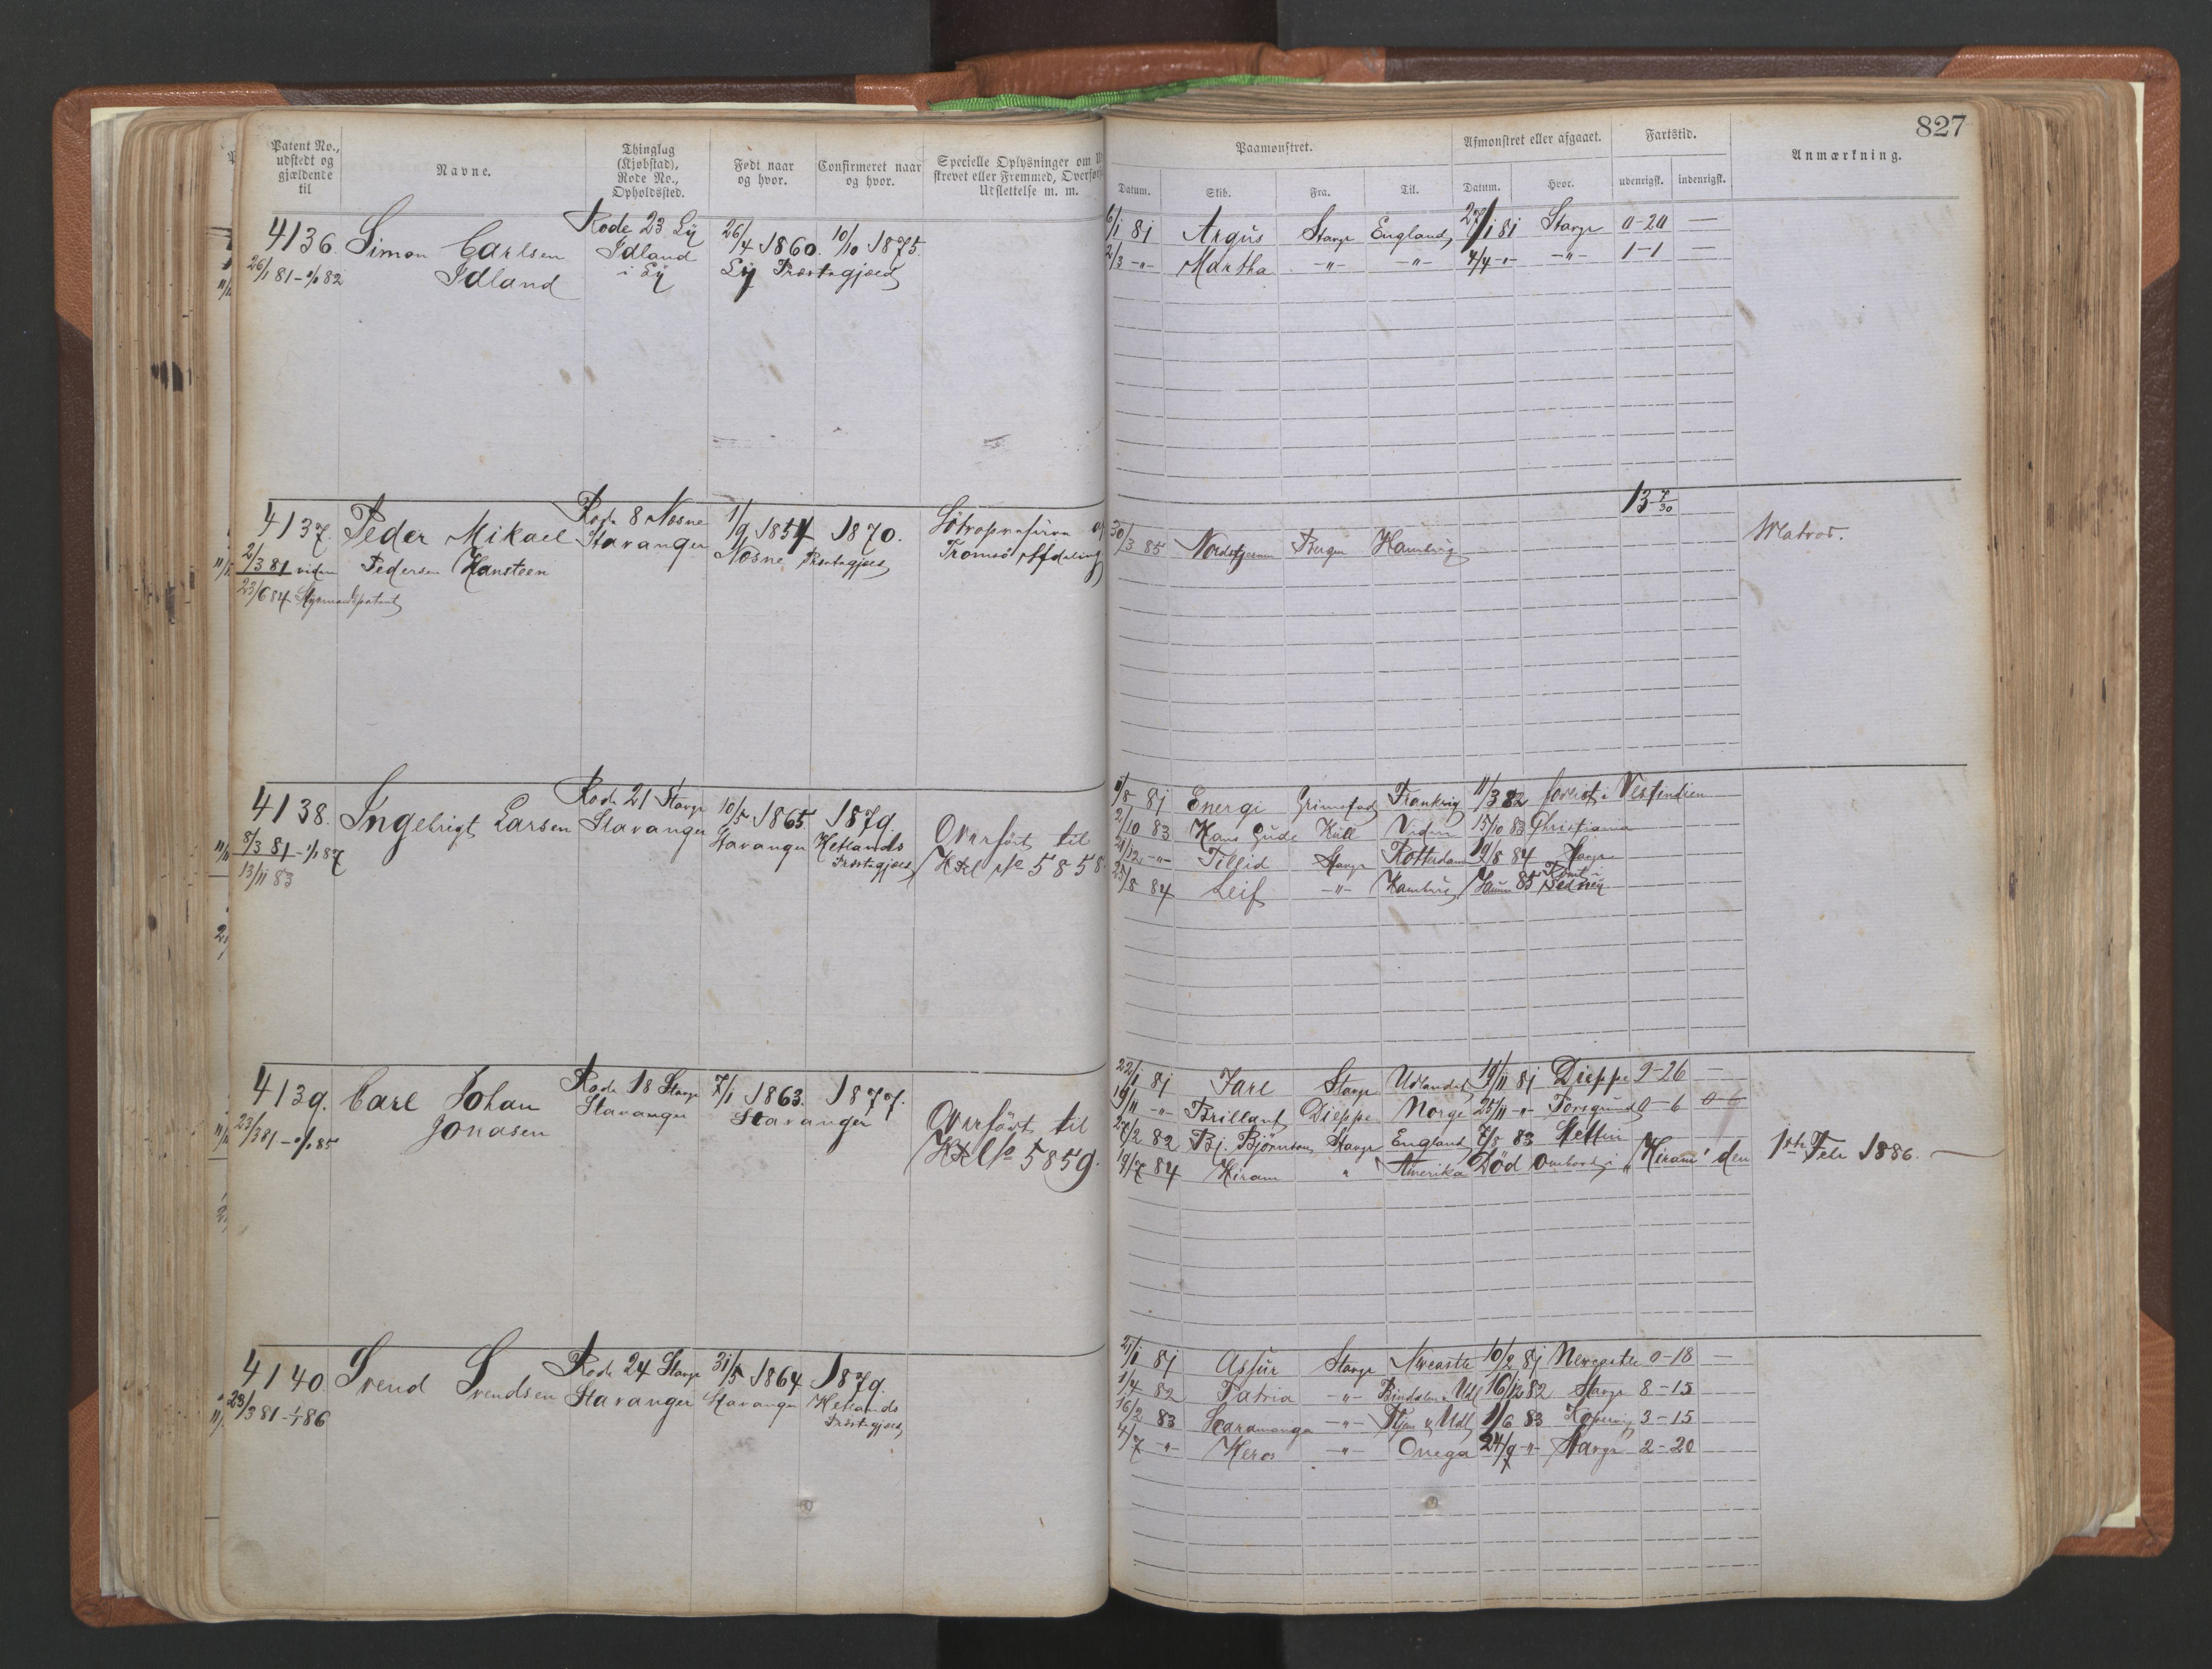 827
Patent No., udstedt og gjældende til
Navne.
Thinglag (Kjøbstad), Rode No., Opholdssted.
Født naar og hvor.
Confirmeret naar og hvor.
Specielle Oplysninger om
skrevet eller Fremmed, Overført
Udslettelse m. m.
Paamønstret.
Afmønstret eller afgaaet.
Fartstid.
Anmærkning.
Datum. Skib. Fra. Til. Datum. Hvor. udenrigsk. indenrigsk.
4136. Simon Carlsen Rode 23 Ly 26/4 1860. 10/10 1875.
Idland Idland Ly Præstegjæld
26/1 81 – 1/1 82 i Ly
6/1 81 Argus Stavgr England 27/1 81 Stavgr 0-20 —
2/3 -"- Martha -"- -"- 4/4 -"- -"- 1-1 —
4137. Peder Mikael Rode 8 Nesne 1/9 1854 1870.
Pedersen Hansteen Stavanger Nesne Præstegjæld
2/3 81 viden
23/6 84 Styrmandspatent
Tromsø Afdeling
13 7/30
30/3 85 Nordstjernen Bergen Hamburg Matros.
4138. Ingebrigt Larsen Rode 21 Stavgr 10/5 1865 1879.
Stavanger Stavanger Hetlands Præstegjæld
8/3 81 – 1/1 87
13/11 83
Overført til
H Rl No 5858
81 Energi Grimstad Frankrig 11/3 82 forlist i Vestindien
2/10 83 Hans Gude Hull Viden 15/10 83 Christiania
21/12 -"- Tillid Stavgr Rotterdam 19/8 84 Stavgr
25/8 84 Leif -"- Hamburg Januar 85 Rømt i Sidney
4139. Carl Johan Rode 18 Stavgr 7/1 1863. 1877.
Jonasen Stavanger Stavanger
23/3 81 – 1/1 85
Overført til
H Rl No 5859.
22/1 81 Jarl Stavgr Udlandet 19/11 81 Dieppe 9-26 —
19/11 -"- Brillant Dieppe Norge 25/11 -"- Porsgrund 0-6 0-6
27/2 82 Bj. Bjørnson Stavgr England 7/8 83 Stettin
19/7 84 Hiram " Amerika Død ombord i „Hiram" den 1ste Feb 1886.
4140. Svend Svendsen Rode 24 Stavgr 31/5 1864 1879.
Stavanger Stavanger Hetlands Præstegjæld
23/3 81 – 1/1 86
21/1 81 Assur Stavgr Newcastle 10/2 81 Newcastle 0-18 —
1/4 82 Patria -"- Udl 16/12 82 Stavgr 8-15
16/2 83 Scaramanga -"- Udl 1/6 83 Kopervig 3-15
4/7 -"- Heros -"- Onega 24/9 -"- Stavgr 2-20